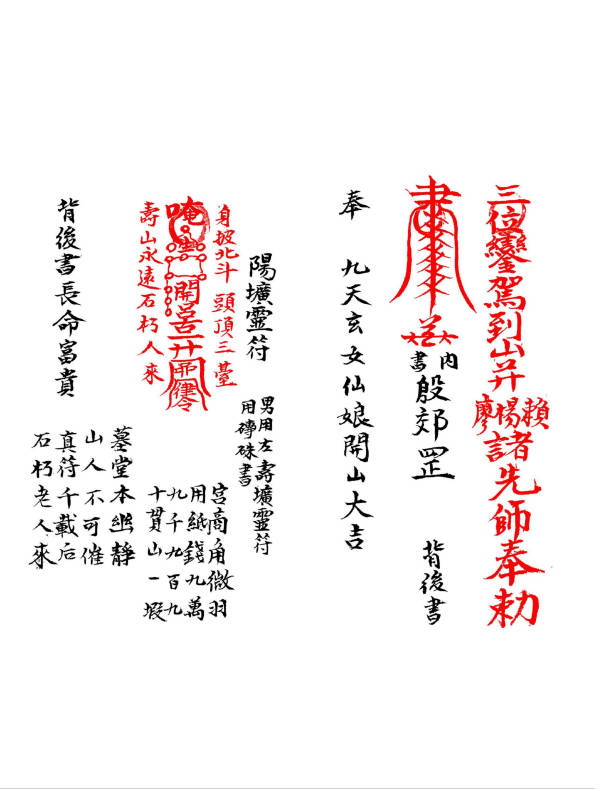 三位鑾駕到山并
賴
楊
廖
諸先師奉勅
內書
殷郊罡
背後書
奉 九天玄女仙娘開山大吉
陽壙靈符
身披北斗頭頂三臺
唵
開
壽山永遠石朽人來
背後書長命富貴
男用左壽壙靈符
用磚硃書
宮商角徵羽
用紙錢九萬
九千九百九
十貫山一
墓堂本幽靜
山人不可催
真符千載后
石朽老人來